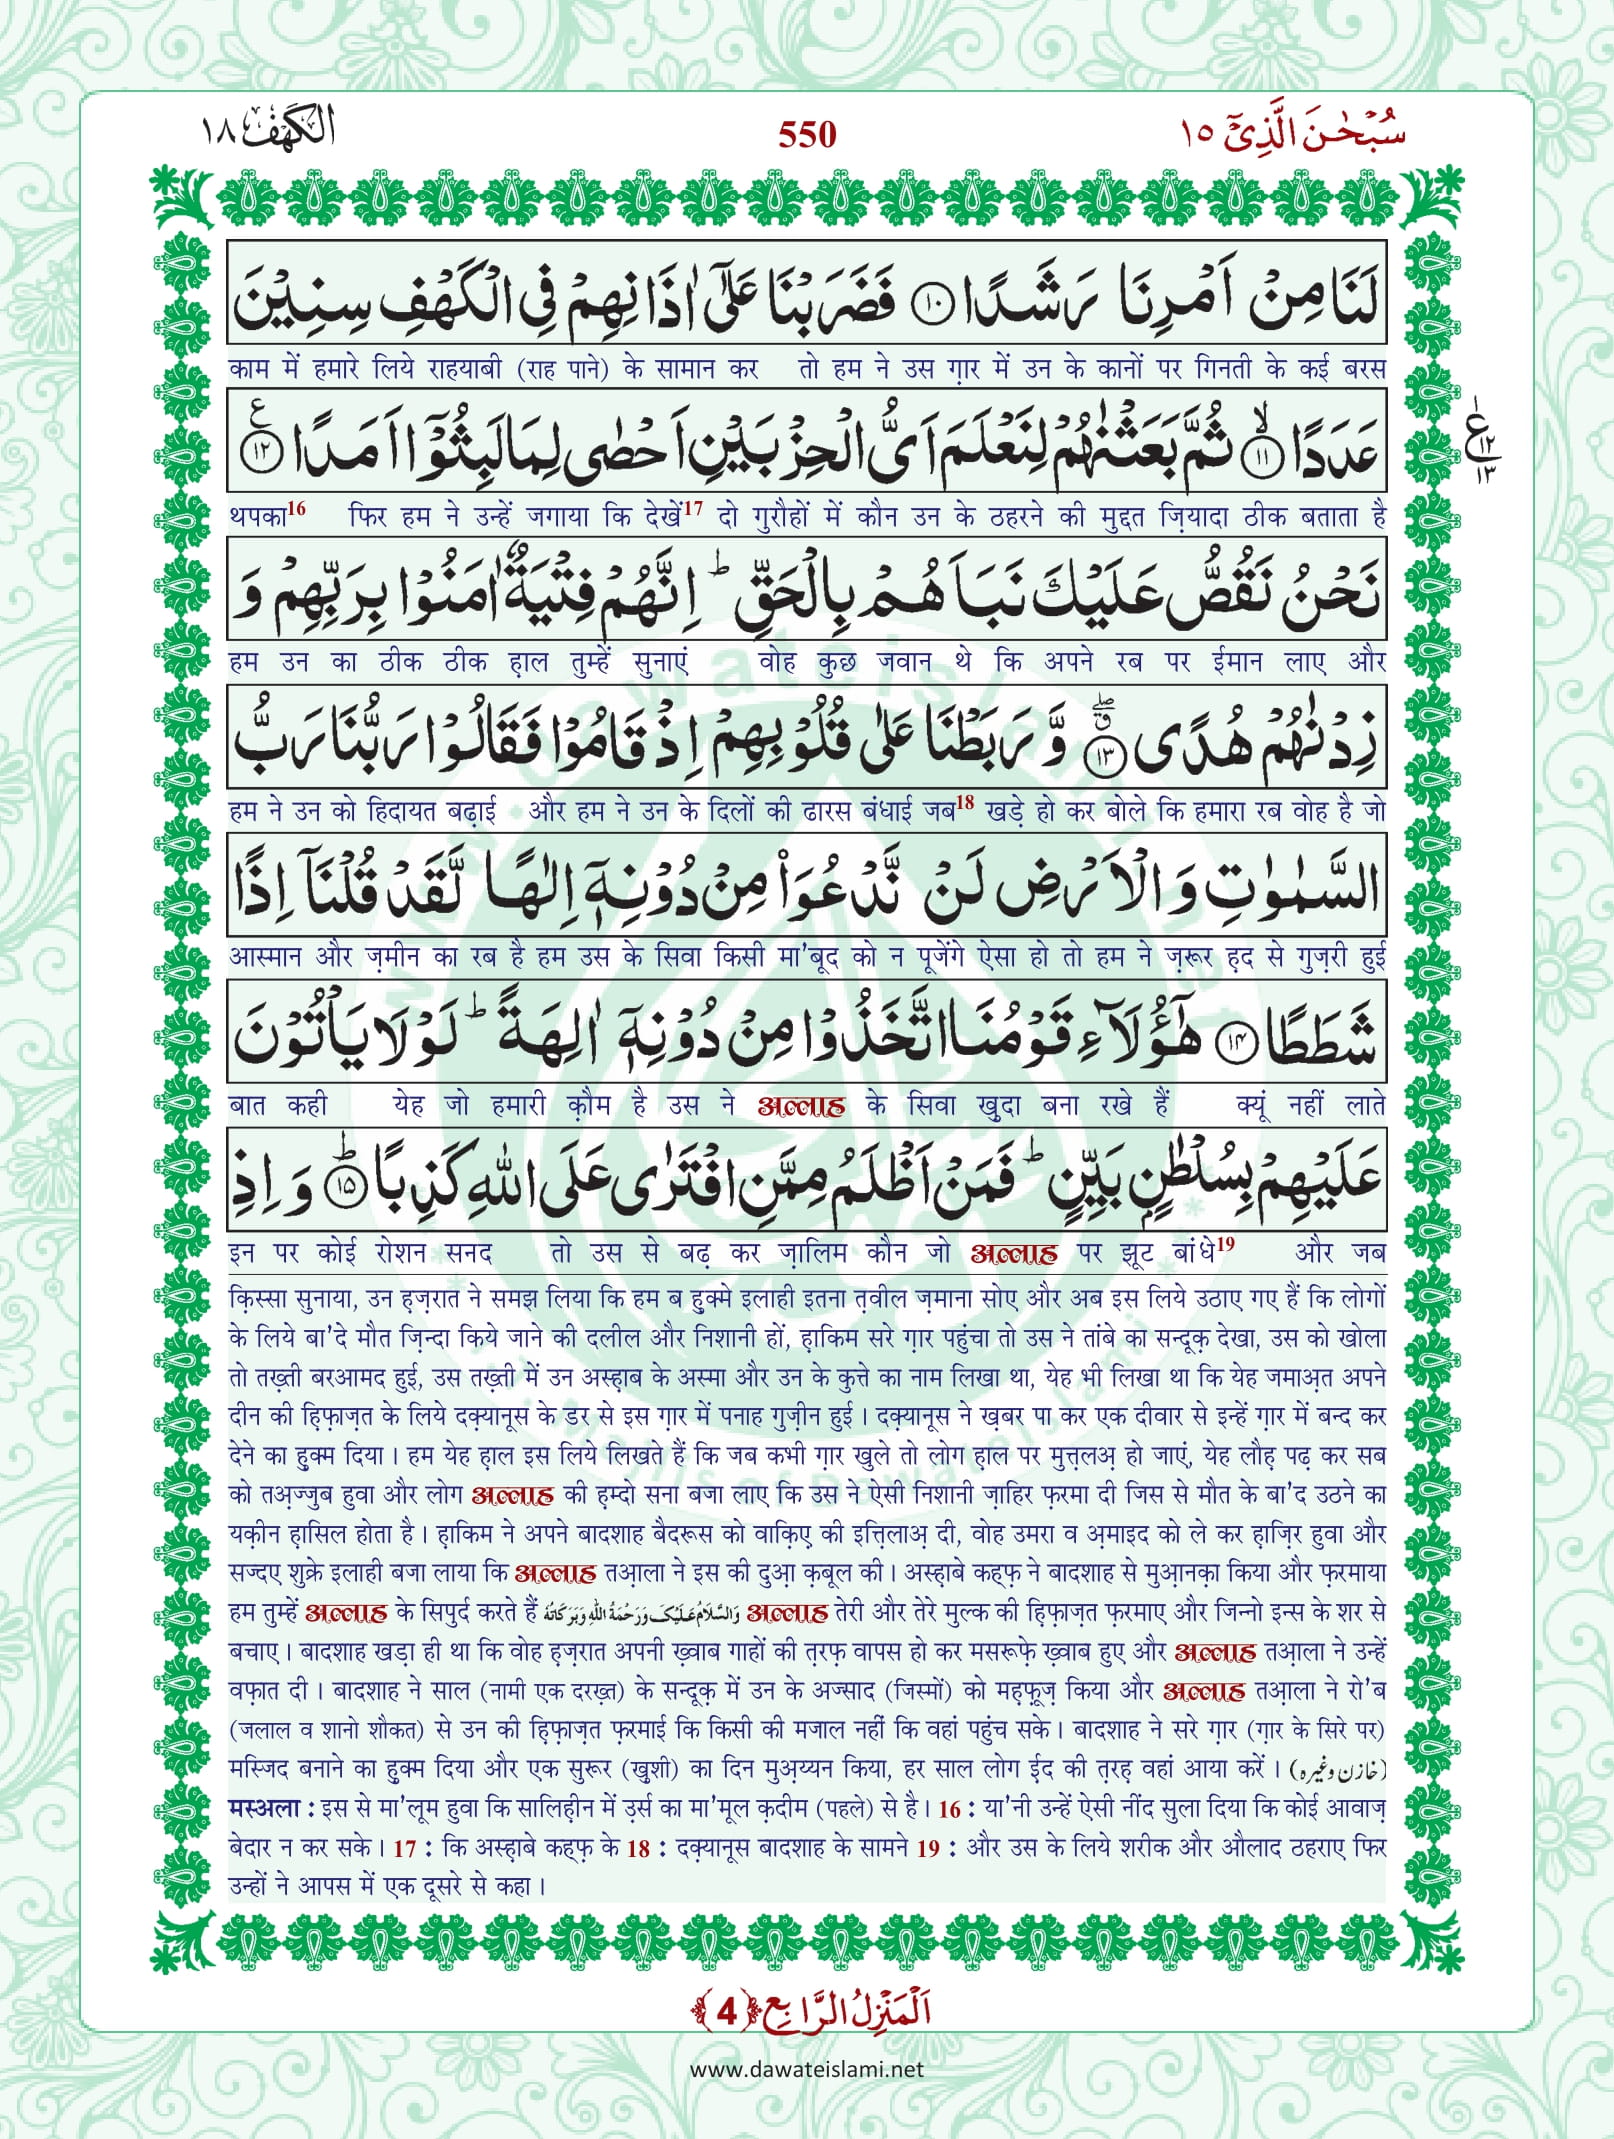 سُبۡحٰنَ الَّذِیۡۤ ١٥
550
الکَهۡف ١٨
لَنَا مِنۡ اَمۡرِنَا رَشَدًا ﴿۱۰﴾ فَضَرَبۡنَا عَلٰۤی اٰذَانِهِمۡ فِی الۡکَهۡفِ سِنِیۡنَ
काम में हमारे लिये राहयाबी (राह पाने) के सामान कर तो हम ने उस ग़ार में उन के कानों पर गिनती के कई बरस
عَدَدًا ﴿ۙ۱۱﴾ ثُمَّ بَعَثۡنٰهُمۡ لِنَعۡلَمَ اَیُّ الۡحِزۡبَیۡنِ اَحۡصٰی لِمَا لَبِثُوۡۤا اَمَدًا ﴿۱۲﴾ع
ع ۱۲ ۱۳
थपका16 फिर हम ने उन्हें जगाया कि देखें17 दो गुरौहों में कौन उन के ठहरने की मुद्दत ज़ियादा ठीक बताता है
نَحۡنُ نَقُصُّ عَلَیۡكَ نَبَاَهُمۡ بِالۡحَقِّ ؕ اِنَّهُمۡ فِتۡیَةٌ اٰمَنُوۡا بِرَبِّهِمۡ وَ
हम उन का ठीक ठीक ह़ाल तुम्हें सुनाएं वोह कुछ जवान थे कि अपने रब पर ईमान लाए और
زِدۡنٰهُمۡ هُدًی ﴿۱۳﴾ۖق وَّ رَبَطۡنَا عَلٰی قُلُوۡبِهِمۡ اِذۡ قَامُوۡا فَقَالُوۡا رَبُّنَا رَبُّ
हम ने उन को हिदायत बढ़ाई और हम ने उन के दिलों की ढारस बंधाई जब18 खड़े हो कर बोले कि हमारा रब वोह है जो
السَّمٰوٰتِ وَ الۡاَرۡضِ لَنۡ نَّدۡعُوَا۠ مِنۡ دُوۡنِهٖۤ اِلٰهًا لَّقَدۡ قُلۡنَاۤ اِذًا
आस्मान और ज़मीन का रब है हम उस के सिवा किसी मा'बूद को न पूजेंगे ऐसा हो तो हम ने ज़रूर ह़द से गुज़री हुई
شَطَطًا ﴿۱۴﴾ هٰۤؤُلَآءِ قَوۡمُنَا اتَّخَذُوۡا مِنۡ دُوۡنِهٖۤ اٰلِهَةً ؕ لَوۡلَا یَاۡتُوۡنَ
बात कही येह जो हमारी क़ौम है उस ने अल्लाह के सिवा खुदा बना रखे हैं क्यूं नहीं लाते
عَلَیۡهِمۡ بِسُلۡطٰنٍۭ بَیِّنٍ ؕ فَمَنۡ اَظۡلَمُ مِمَّنِ افۡتَرٰی عَلَی اللّٰهِ کَذِبًا ﴿ؕ۱۵﴾ وَ اِذِ
इन पर कोई रोशन सनद तो उस से बढ़ कर ज़ालिम कौन जो अल्लाह पर झूट बांधे19 और जब
क़िस्सा सुनाया, उन ह़ज़रात ने समझ लिया कि हम ब हुक्मे इलाही इतना त़वील ज़माना सोए और अब इस लिये उठाए गए हैं कि लोगों
के लिये बा'दे मौत ज़िन्दा किये जाने की दलील और निशानी हों, ह़ाकिम सरे ग़ार पहुंचा तो उस ने तांबे का सन्दूक़ देखा, उस को खोला
तो तख़्ती बरआमद हुई, उस तख़्ती में उन अस्ह़ाब के अस्मा और उन के कुत्ते का नाम लिखा था, येह भी लिखा था कि येह जमाअ़त अपने
दीन की हि़फ़ाज़त के लिये दक़्यानूस के डर से इस ग़ार में पनाह गुज़ीन हुई । दक़्यानूस ने ख़बर पा कर एक दीवार से इन्हें ग़ार में बन्द कर
देने का हुक्म दिया । हम येह हाल इस लिये लिखते हैं कि जब कभी ग़ार खुले तो लोग हाल पर मुत्त़लअ़ हो जाएं, येह लौह़ पढ़ कर सब
को तअ़ज्जुब हुवा और लोग अल्लाह की ह़म्दो सना बजा लाए कि उस ने ऐसी निशानी ज़ाहिर फ़रमा दी जिस से मौत के बा'द उठने का
यक़ीन ह़ासिल होता है । ह़ाकिम ने अपने बादशाह बैदरूस को वाक़िए की इत्ति़लाअ़ दी, वोह उमरा व अ़माइद को ले कर ह़ाज़िर हुवा और
सज्दए शुक्रे इलाही बजा लाया कि अल्लाह तआ़ला ने इस की दुआ़ क़बूल की । अस्ह़ाबे कह्फ़ ने बादशाह से मुआ़नक़ा किया और फ़रमाया
हम तुम्हें अल्लाह के सिपुर्द करते हैं وَالسَّلَامُ عَلَيْکَ وَرَحْمَةُ اللّٰهِ وَبَرَکَاتُهٗ अल्लाह तेरी और तेरे मुल्क की हि़फ़ाज़त फ़रमाए और जिन्नो इन्स के शर से
बचाए । बादशाह खड़ा ही था कि वोह ह़ज़रात अपनी ख़्वाब गाहों की त़रफ़ वापस हो कर मसरूफ़े ख़्वाब हुए और अल्लाह तआ़ला ने उन्हें
वफ़ात दी । बादशाह ने साल (नामी एक दरख़्त) के सन्दूक़ में उन के अज्साद (जिस्मों) को मह़फ़ूज़ किया और अल्लाह तआ़ला ने रो'ब
(जलाल व शानो शौकत) से उन की हि़फ़ाज़त फ़रमाई कि किसी की मजाल नहीं कि वहां पहुंच सके । बादशाह ने सरे ग़ार (ग़ार के सिरे पर)
मस्जिद बनाने का हुक्म दिया और एक सुरूर (खुशी) का दिन मुअ़य्यन किया, हर साल लोग ई़द की त़रह़ वहां आया करें । (خازن وغیرہ)
मस्अला : इस से मा'लूम हुवा कि सालिह़ीन में उ़र्स का मा'मूल क़दीम (पहले) से है । 16 : या'नी उन्हें ऐसी नींद सुला दिया कि कोई आवाज़
बेदार न कर सके । 17 : कि अस्ह़ाबे कह्फ़ के 18 : दक़्यानूस बादशाह के सामने 19 : और उस के लिये शरीक और औलाद ठहराए फिर
उन्हों ने आपस में एक दूसरे से कहा ।
اَلْمَنْزِلُ الرَّابِع ﴿4﴾
www.dawateislami.net